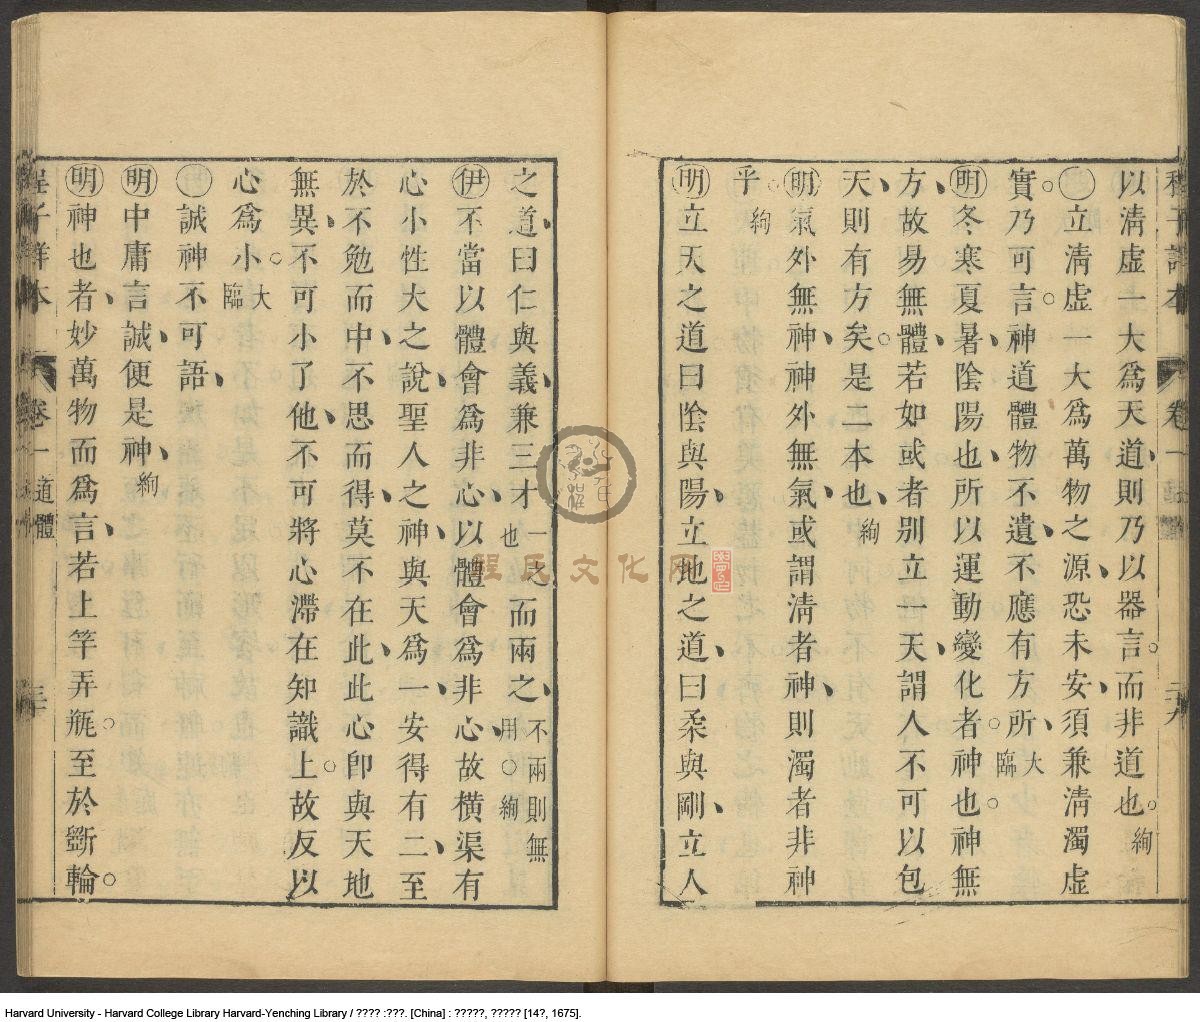 以清虛一大爲天道則乃以器言而非道也絢
○立清虛一大爲萬物之源恐未安須兼清濁虛
實乃可言神道體物不遺不應有方所大臨
明冬寒夏暑陰陽也所以運動變化者神也神無
方故易無體若如或者别立一天謂人不可以包
天則有方矣是二本也絢
明氣外無神神外無氣或謂清者神則濁者非神
乎絢
明立天之道曰陰與陽立地之道曰柔與剛立人
卷一
二十九
之道曰仁與義兼三才一之也而兩之不兩則無用○絢
伊不當以體會爲非心以體會爲非心故横渠有
心小性大之說聖人之神與天爲一安得有二至
於不勉而中不思而得莫不在此此心卽與天地
無異不可小了他不可將心滯在知識上故反以
心爲小大臨
○誠神不可語
明中庸言誠便是神絢
明神也者妙萬物而爲言若上竿弄瓶至於斲輪
程子詳本
卷一
道體
三十
程氏文化网
Harvard University - Harvard College Library Harvard-Yenching Library / ???? :???. [China] : ?????, ????? [14?, 1675].